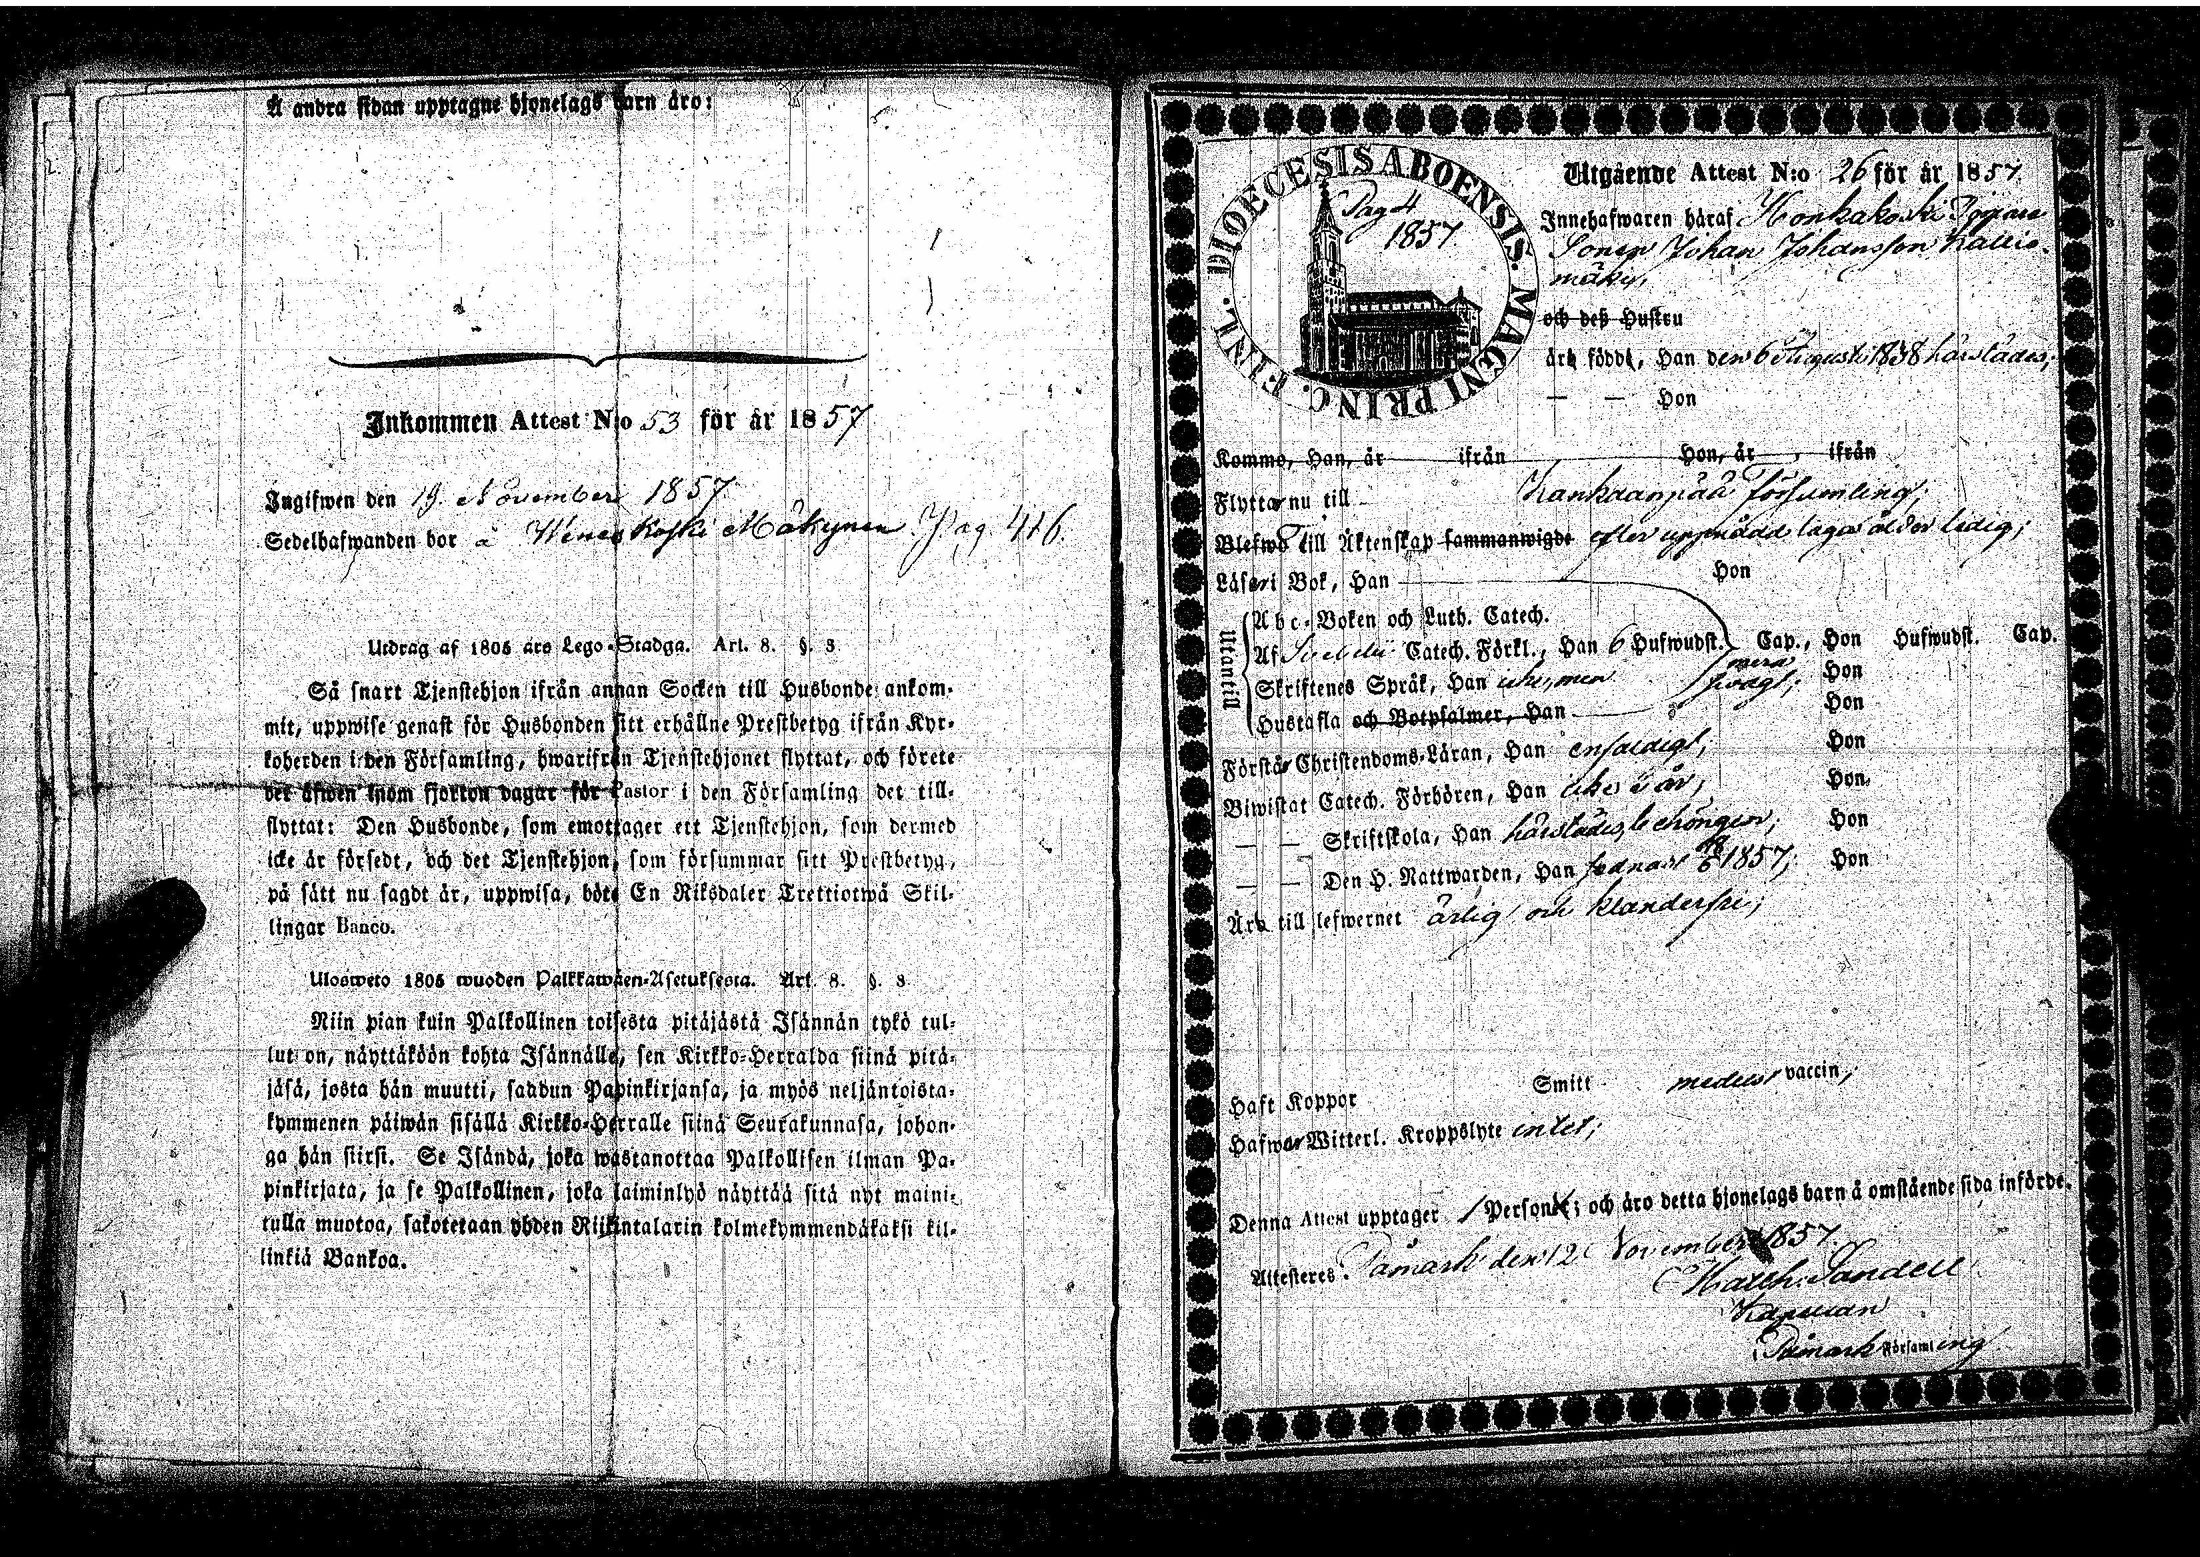 Å andra sidan upptagne hjonelags barn äro:
Inkommen Attest N:o 53 för år 1857
Ingifwen den 19. November 1857
Sedelhafwanden bor å Weneskoski Mäkynen Pag. 416.
Utdrag af 1805 års Lego-Stadga. Art. 8. §. 3
Så snart Tjenstehjon ifrån annan Socken till Husbonde ankom-
mit, uppwise genast för Husbonden sitt erhållne Prestbetyg ifrån Kyr-
koherden i den Församling, hwarifrån Tjenstehjonet flyttat, och förete
det äfwen inom fjorton dagar för Pastor i den Församling det till-
flyttat: Den Husbonde, som emottager ett Tjenstehjon, som dermed
icke är försedt, och det Tjenstehjon, som försummar sitt Prestbetyg,
på sätt nu sagdt är, uppwisa, böte En Riksdaler Trettiotwå Skil-
lingar Banco.
Ulosweto 1805 wuoden Palkkawäen-Asetuksesta. Art. 8. §. 3
Niin pian kuin Palkollinen toisesta pitäjästä Isännän tykö tul-
lut on, näyttäköön kohta Isännälle, sen Kirkko-Herralda siinä pitä-
jäsä, josta hän muutti, saadun Papinkirjansa, ja myös neljäntoista-
kymmenen päiwän sisällä Kirkko-Herralle siinä Seurakunnasa, johon-
ga hän siirsi. Se Isändä, joka wastanottaa Palkollisen ilman Pa-
pinkirjata, ja se Palkollinen, joka laiminlyö näyttää sitä nyt maini-
tulla muotoa, sakotetaan yhden Riikintalarin kolmekymmendäkaksi kil-
linkiä Bankoa.
DIOECESIS ABOENSIS. MAGNI PRINC. FINL.
Pag 4
1857
Utgående Attest N:o 26 för år 1857.
Innehafwaren häraf Honkakoski
Sonen Johan Johansson Kallio-
mäki,
och deß Hustru
äro födde, Han den 6 Augusti 1838 härstädes,
— — Hon
Kommo, Han, år ifrån Hon, år , ifrån
Flyttar nu till Kankaanpää Församling;
Blefwo till Äktenskap sammanwigde efter uppnådd laga ålder ledig;
Läser i Bok, Han Hon
Utantill
Abc-Boken och Luth. Catech.
Af Svebelii Catech. Förkl., Han 6 Hufwudst. Cap., Hon Hufwudst. Cap.
Skriftenes Språk, Han icke, men mera swagt; Hon
Hustafla och Botpsalmer, Han Hon
Förstår Christendoms-Läran, Han enfaldigt; Hon
Biwistat Catech. Förhören, Han icke i år; Hon
— — Skriftskola, Han härstädes, behörigen; Hon
— — Den H. Nattwarden, Han sednast 1857; Hon
Äro till lefwernet ärlig och klanderfri;
Haft Koppor Smitt medelst vaccin;
Hafwa Witterl. Kroppslyte intet;
Denna Attest upptager 1 Person; och äro detta hjonelags barn å omstående sida införde.
Attesteres. Påmark den 12 November 1857.
Matth: Sandell
Kapellan
i Påmark Församling